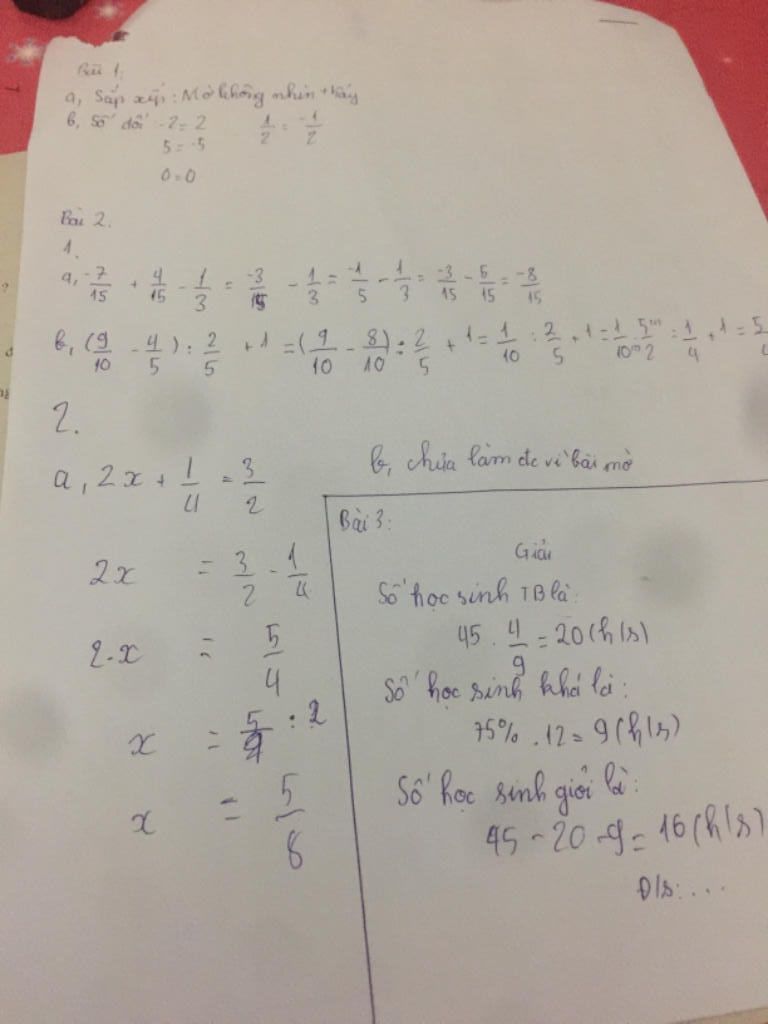 Bài 1:
a, Sắp xếp: Mờ không nhìn thấy
b, Số đối -2 = 2 1/2 = -1/2
5 = -5
0 = 0
Bài 2.
1.
a, -7/15 + 4/15 - 1/3 = -3/15 - 1/3 = -1/5 - 1/3 = -3/15 - 5/15 = -8/15
b, (9/10 - 4/5) : 2/5 + 1 = (9/10 - 8/10) : 2/5 + 1 = 1/10 : 2/5 + 1 = 1/10 . 5/2 = 1/4 + 1 = 5/4
2.
a, 2x + 1/4 = 3/2
2x = 3/2 - 1/4
2.x = 5/4
x = 5/4 : 2
x = 5/8
b, chưa làm đc vì bài mờ
Bài 3:
Giải
Số học sinh TB là:
45 . 4/9 = 20 (h/s)
Số học sinh khá là:
75% . 12 = 9 (h/s)
Số học sinh giỏi là:
45 - 20 - 9 = 16 (h/s)
Đ/s: ...